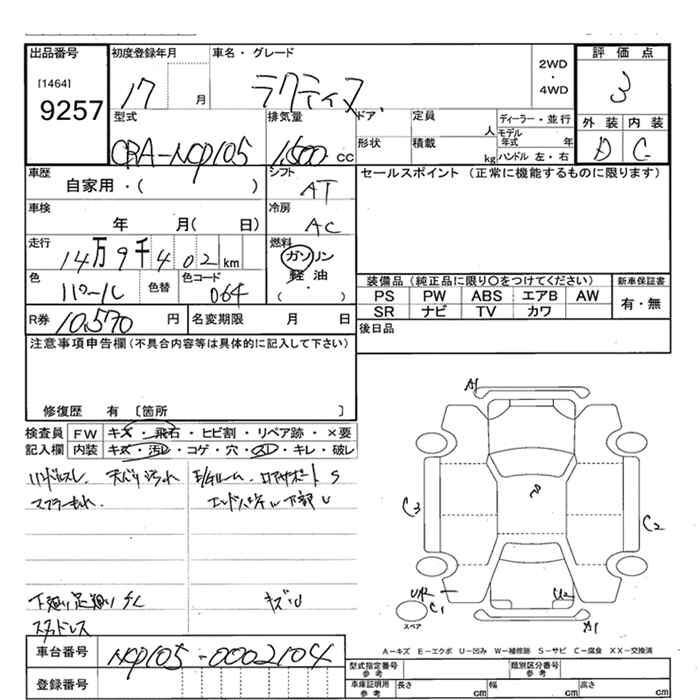 出品番号
[1464]
9257
初度登録年月
17 月
車名・グレード
ラクティス
2WD
・
4WD
評価点
3
外装 内装
D C
型式
CBA-NCP105
排気量
1,500 cc
ドア
形状
定員
人
積載
kg
ディーラー・並行
モデル
年式 年
ハンドル 左・右
車歴
自家用・( )
シフト
AT
車検
年 月( 日)
冷房
AC
走行
14万9千402km
燃料
ガソリン
軽油
( ・ )
色
パール
色替
色コード
064
R券
10,570 円
名変期限 月 日
セールスポイント (正常に機能するものに限ります)
装備品(純正品に限り〇をつけてください)
PS PW ABS エアB AW
SR ナビ TV カワ
新車保証書
有・無
後日品
注意事項申告欄(不具合内容等は具体的に記入して下さい)
修復歴 有 〔箇所 〕
検査員
記入欄
FW キズ・飛石・ヒビ割・リペア跡・×要
内装 キズ・汚レ・コゲ・穴・スレ・キレ・破レ
ハンドルスレ 天バリ汚れ
マフラー
S
エンドパネル下部 U
下廻り足廻りサビ
キズU
スタッドレス
A1
C3
C2
U2
A1
C1
スペア
A-キズ E-エクボ U-凹み W-補修跡 S-サビ C-腐食 XX-交換済
車台番号
NCP105-0002104
登録番号
型式指定番号
参考
類別区分番号
参考
車庫証明用
参考
長さ cm
幅 cm
高さ cm